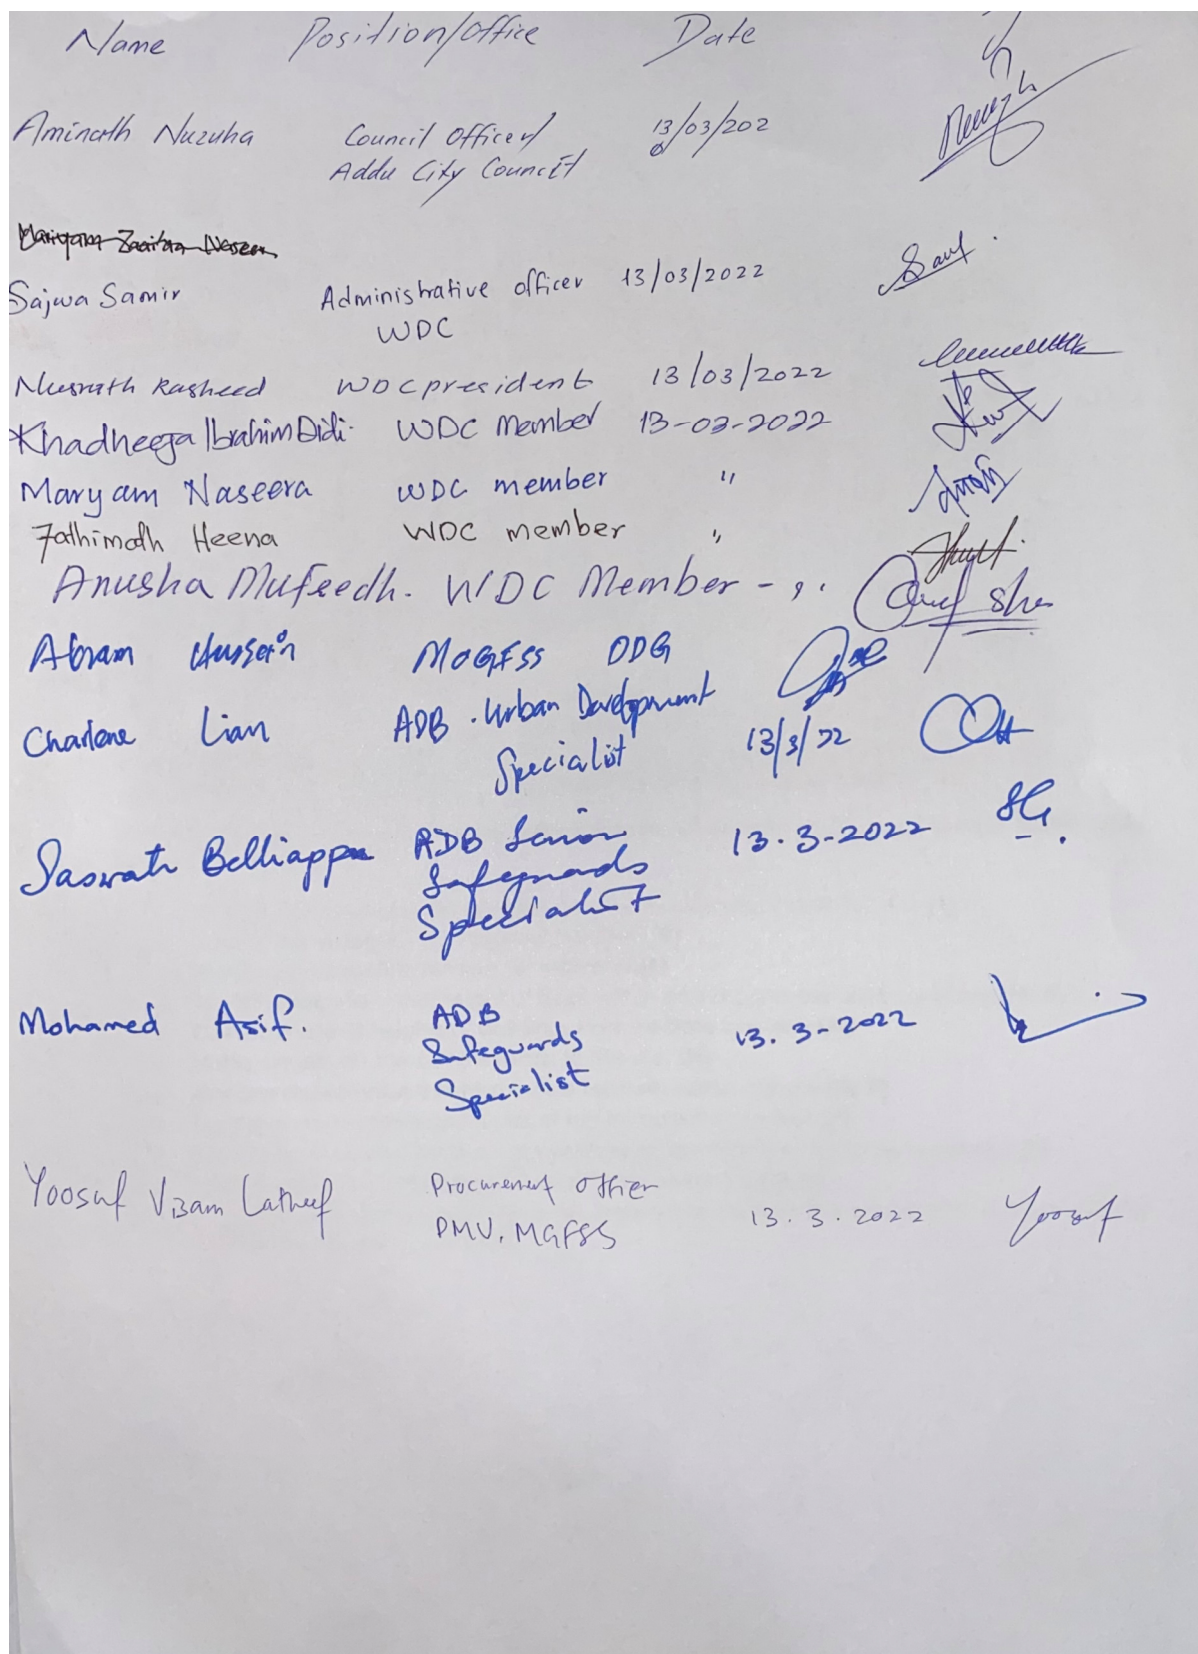 Name Position/Office Date
Aminath Nuzuha Council Officer/ 13/03/202
Addu City Council
Sajwa Samir Administrative officer 13/03/2022
WDC
Nusrath Rasheed WDC president 13/03/2022
Khadheeja Ibrahim Didi. WDC Member 13-03-2022
Maryam Naseera WDC member "
Fathimath Heena WDC member "
Anusha Mufeedh. WDC Member - "
Hussein MoGFSS ODG
Charlene Lian ADB. Urban Development
Specialist 13/3/22
Saswath Belliappa ADB Senior 13.3-2022
Safeguards
Specialist
Mohamed Asif. ADB 13.3-2022
Safeguards
Specialist
Yoosuf Visam Latheef Procurement Officer
PMU, MGFSS 13.3.2022 Yoosuf